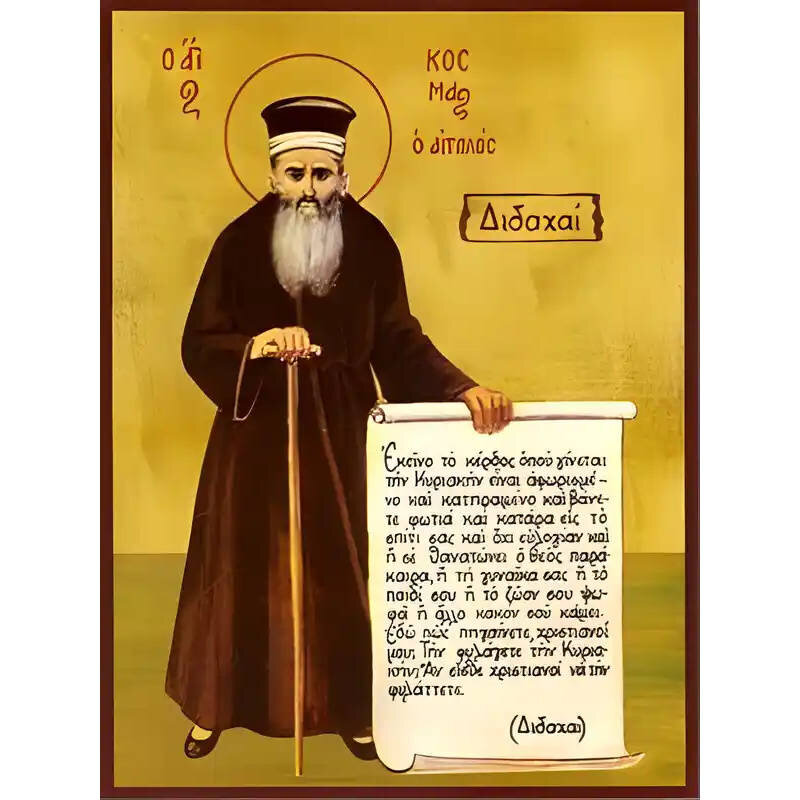 ὁ ἅγι
ος
ΚΟΣ
Μας
ὁ αἰτωλός
Διδαχαί
Ἐκεῖνο τὸ κέρδος ὁποὺ γίνεται
τὴν Κυριακὴν εἶναι ἀφωρισμέ-
νο καὶ κατηραμένο καὶ βάνε-
τε φωτιὰ καὶ κατάρα εἰς τὸ
σπίτι σας καὶ ὄχι εὐλογίαν καὶ
ἢ σὲ θανατώνει ὁ θεὸς παρά-
καιρα, ἢ τὴ γυναῖκα σας ἢ τὸ
παιδί σου ἢ τὸ ζῶον σου ψω-
φᾶ ἢ ἄλλο κακὸν σοῦ κάμει.
Ἐδῶ πῶς πηγαίνετε, χριστιανοί
μου; Τὴν φυλάγετε τὴν Κυρια-
κήν; Ἂν εἶσθε χριστιανοί νὰ τὴν
φυλάττετε.
(Διδαχαί)